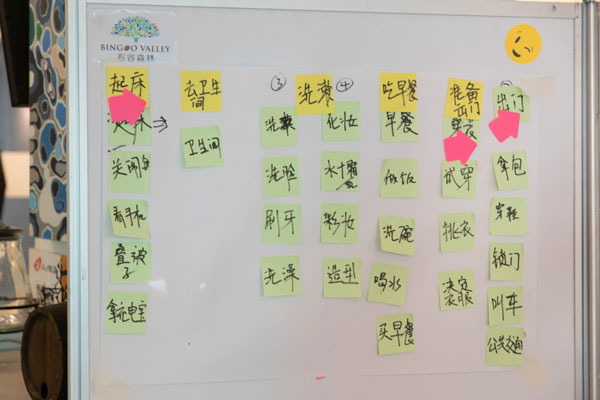 BINGOO VALLEY
布谷森林
起床
去卫生间
③
洗漱
④
吃早餐
准备出门
出门
起床
关闹钟
看手机
叠被子
拿充电宝
卫生间
洗漱
洗脸
刷牙
洗澡
化妆
水+霜
彩妆
造型
早餐
做饭
洗碗
喝水
买早餐
试穿
挑衣
决定衣服
拿包
穿鞋
锁门
叫车
公共交通